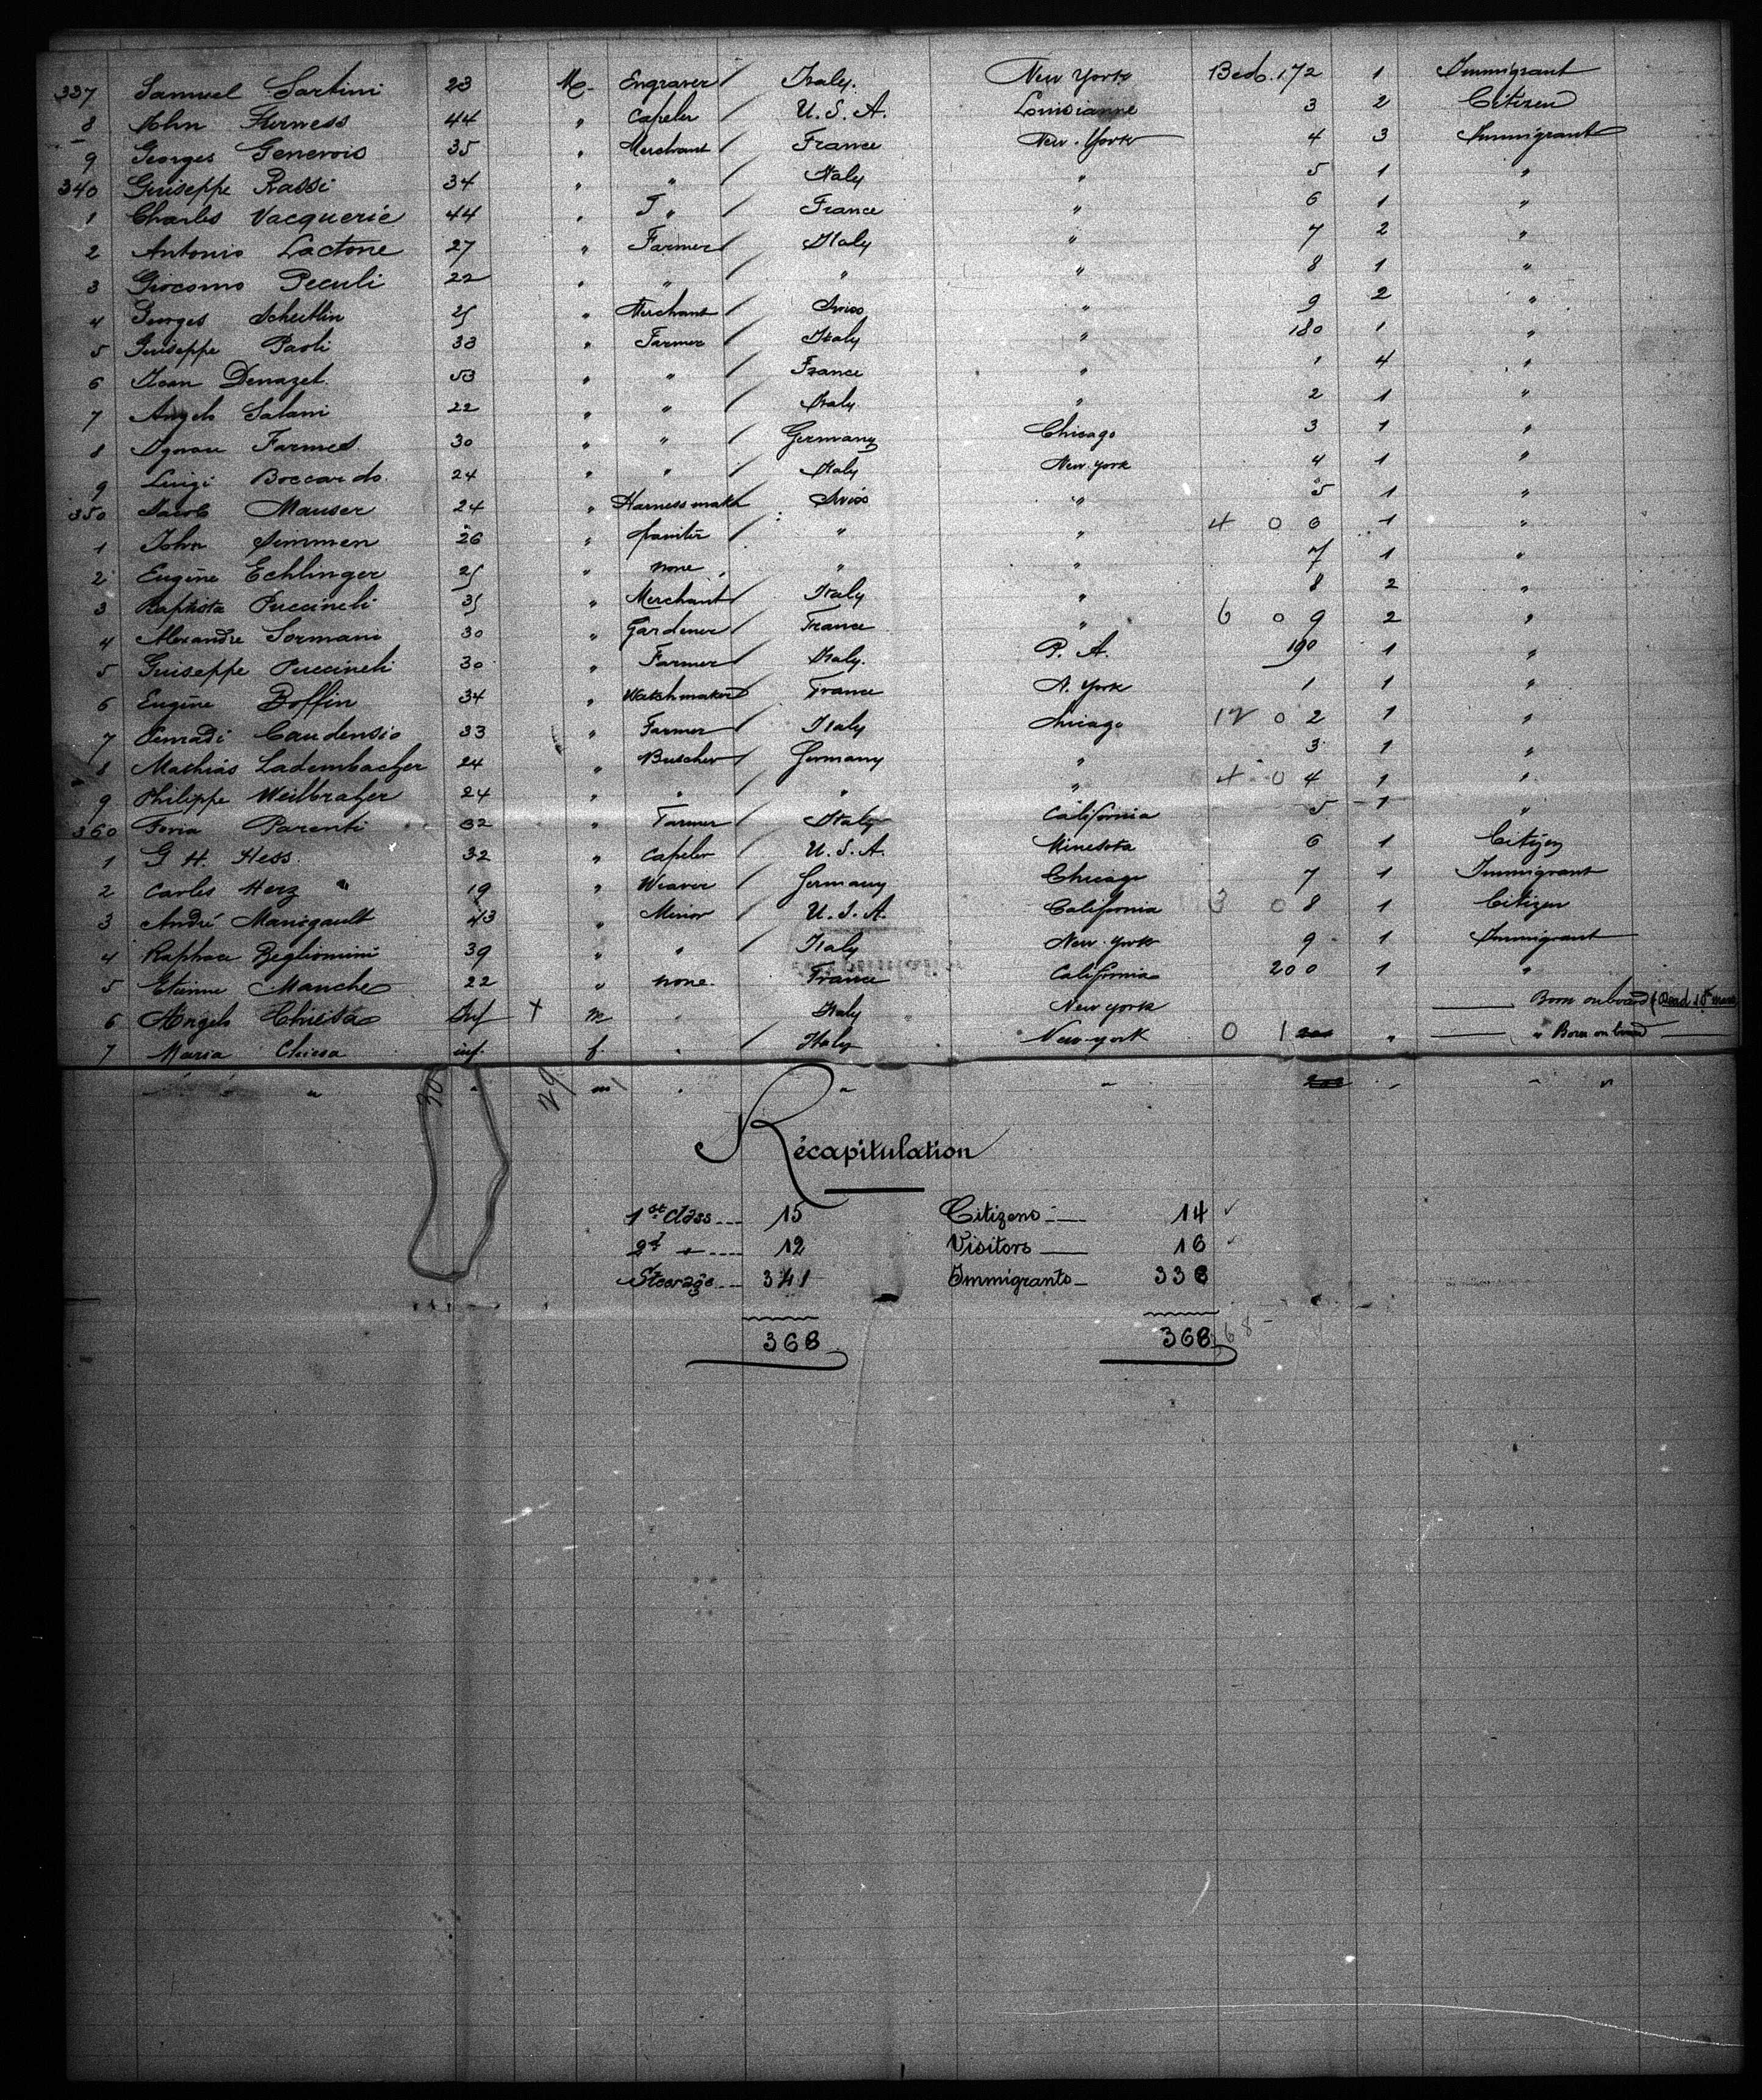 337 Samuel Sartini 23 M. Engraver / Italy. New York Bed. 172 1 Immigrant
8 John Furness 44 " Capeler / U. S. A. Louisianne 3 2 Citizen
9 Georges Genevois 35 " Merchant / France New-York 4 3 Immigrant
340 Guiseppe Rassi 34 " " / Italy " 5 1 "
1 Charles Vacquerie 44 " " / France " 6 1 "
2 Antonio Lactone 27 " Farmer / Italy " 7 2 "
3 Giocomo Peculi 22 " " / " " 8 1 "
4 Georges Scheitlin 25 " Merchant / Swiss " 9 2 "
5 Guiseppe Paoli 33 " Farmer / Italy " 180 1 "
6 Jean Denazet 53 " " / France " 1 4 "
7 Angelo Salani 22 " " / Italy " 2 1 "
8 Farmed 30 " " / Germany Chicago 3 1 "
9 Luigi Boccardo 24 " " / Italy New-york 4 1 "
350 Jacob Mauser 24 " Harness maker Swiss " 5 1 "
1 John Simmen 26 " painter / " " 4 0 6 1 "
2 Eugène Echlinger 25 " none " " 7 1 "
3 Baptista Puccineli 35 " Merchant / Italy " 8 2 "
4 Alexandre Sormani 30 " Gardener / France " 6 0 9 2 "
5 Guiseppe Puccineli 30 " Farmer / Italy. P. A. 190 1 "
6 Eugène Boffin 34 " Watchmaker France N. York 1 1 "
7 Caudensio 33 " Farmer / Italy Chicago 12 0 2 1 "
8 Mathias Ladembacher 24 " Butcher / Germany " 3 1 "
9 Philippe Weilbracher 24 " " / " " 4 0 4 1 "
360 Parenti 32 " Farmer / Italy California 5 1 "
1 G H. Hess 32 " Capeler / U. S. A. Minesota 6 1 Citizen
2 Carles Herz 19 " Weaver / Germany Chicago 7 1 Immigrant
3 André Manigault 43 " Minor / U. S. A. California 3 0 8 1 Citizen
4 Beglionimi 39 " " / Italy New-York 9 1 Immigrant
5 Etienne Manche 22 " none. France California 200 1 "
6 Angelo Chiesa Inf + m " Italy New York Born on board
7 Maria Chiesa inf. f. " / Italy New-york 0 1 " " Born on board
" 30 " 29 m " " " " "
Récapitulation
1st Class 15 Citizens 14
2d " 12 Visitors 16
Steerage 341 Immigrants 338
368 368 68